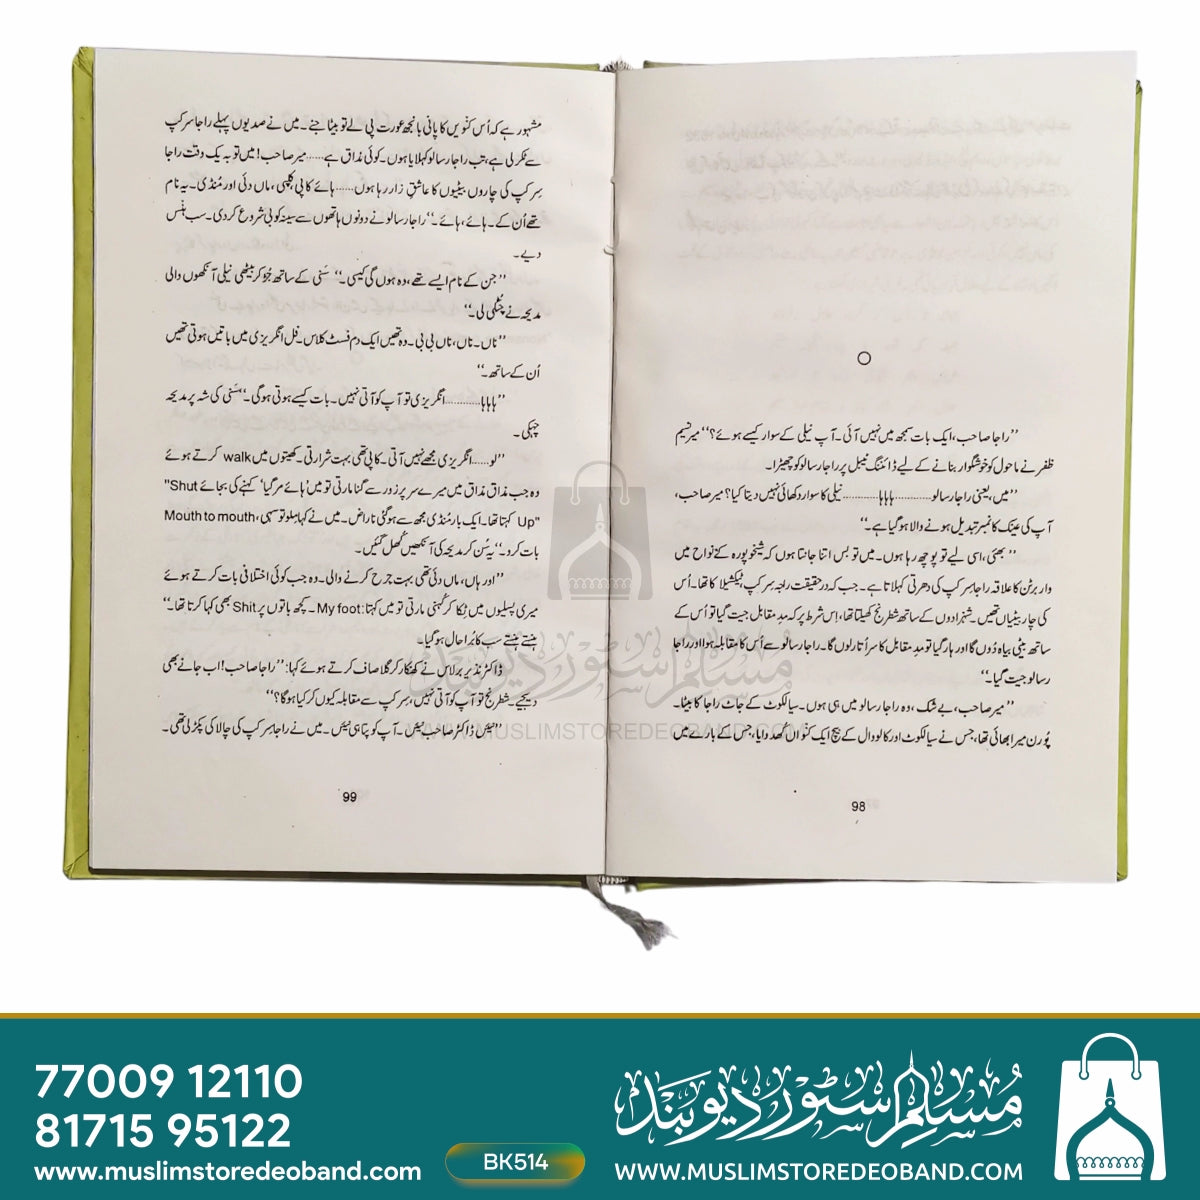 ○
"راجا صاحب، ایک بات سمجھ میں نہیں آئی۔ آپ نیلی کے سوار کیسے ہوئے؟" میر نسیم
ظفر نے ماحول کو خوشگوار بنانے کے لیے ڈائننگ ٹیبل پر راجا رسالو کو چھیڑا۔
"میں، یعنی راجا رسالو............ہاہاہا............نیلی کا سوار دکھائی نہیں دیتا کیا؟ میر صاحب،
آپ کی عینک کا نمبر تبدیل ہونے والا ہو گیا ہے۔"
"بھئی، اسی لیے تو پوچھ رہا ہوں۔ میں تو بس اتنا جانتا ہوں کہ شیخوپورہ کے نواح میں
وار برٹن کا علاقہ راجا سرکپ کی دھرتی کہلاتا ہے۔ جب کہ در حقیقت راجہ سرکپ، ٹیکشیلا کا تھا۔ اُس
کی چار بیٹیاں تھیں۔ شہزادوں کے ساتھ شطرنج کھیلتا تھا، اِس شرط پر کہ مدِ مقابل جیت گیا تو اُس کے
ساتھ بیٹی بیاہ دُوں گا اور ہار گیا تو مدِ مقابل کا سر اُتار لوں گا۔ راجا رسالو سے اُس کا مقابلہ ہوا اور راجا
رسالو جیت گیا۔"
"میر صاحب، بے شک، وہ راجا رسالو میں ہی ہوں۔ سیالکوٹ کے جاٹ راجا کا بیٹا۔
پُورن میرا بھائی تھا، جس نے سیالکوٹ اور کالووال کے بیچ ایک کنواں کُھدوایا، جس کے بارے میں
98
مشہور ہے کہ اُس کنویں کا پانی بانجھ عورت پی لے تو بیٹا جنے۔ میں نے صدیوں پہلے راجا سرکپ
سے ٹکر لی ہے، تب راجا رسالو کہلایا ہوں۔ کوئی مذاق ہے......میر صاحب! میں تو بہ یک وقت راجا
سرکپ کی چاروں بیٹیوں کا عاشقِ زار رہا ہوں......ہائے کاپی، کلپی، ماں دئی اور مُنڈی۔ یہ نام
تھے اُن کے۔ ہائے، ہائے۔" راجا رسالو نے دونوں ہاتھوں سے سینہ کوبی شروع کر دی۔ سب ہنس
دیے۔
"جن کے نام ایسے تھے، وہ ہوں گی کیسی۔" سَنی کے ساتھ جُڑ کر بیٹھی نیلی آنکھوں والی
مدیحہ نے چٹکی لی۔"
"ناں۔ ناں، ناں بی بی۔ وہ تھیں ایک دم فسٹ کلاس۔ فل انگریزی میں باتیں ہوتی تھیں
اُن کے ساتھ۔"
"ہاہاہا............انگریزی تو آپ کو آتی نہیں۔ بات کیسے ہوتی ہوگی۔" سَنی کی شہ پر مدیحہ
چہکی۔
"لو......انگریزی مجھے نہیں آتی۔ کاپی تھی بہت شرارتی۔ کھیتوں میں walk کرتے ہوئے
وہ جب مذاق مذاق میں میرے سر پر زور سے گنا مارتی تو میں 'ہائے مر گیا' کہنے کی بجائے "Shut
Up" کہتا تھا۔ ایک بار مُنڈی مجھ سے ہو گئی ناراض۔ میں نے کہا بولو تو سہی، Mouth to mouth
بات کرو۔" یہ سُن کر مدیحہ کی آنکھیں کُھل گئیں۔
"اور ہاں، ماں دئی تھی بہت جرح کرنے والی۔ وہ جب کوئی اختلافی بات کرتے ہوئے
میری پسلیوں میں ٹکا کر کُہنی مارتی تو میں کہتا: My foot۔ کچھ باتوں پر Shit بھی کہا کرتا تھا۔"
ہنستے ہنستے سب کا بُرا حال ہو گیا۔
ڈاکٹر نذیر برلاس نے کھنکار کر گلا صاف کرتے ہوئے کہا: "راجا صاحب! اب جانے بھی
دیجیے۔ شطرنج تو آپ کو آتی نہیں، سرکپ سے مقابلہ کیوں کر کیا ہوگا؟"
"نیٔں ڈاکٹر صاحب نیٔں۔ آپ کو پتا ہی نیٔں۔ میں نے راجا سرکپ کی چالاکی پکڑ لی تھی۔
99
مسلم سٹور دیوبند
WWW.MUSLIMSTOREDEOBAND.COM
77009 12110
81715 95122
www.muslimstoredeoband.com
BK514
مسلم سٹور دیوبند
WWW.MUSLIMSTOREDEOBAND.COM